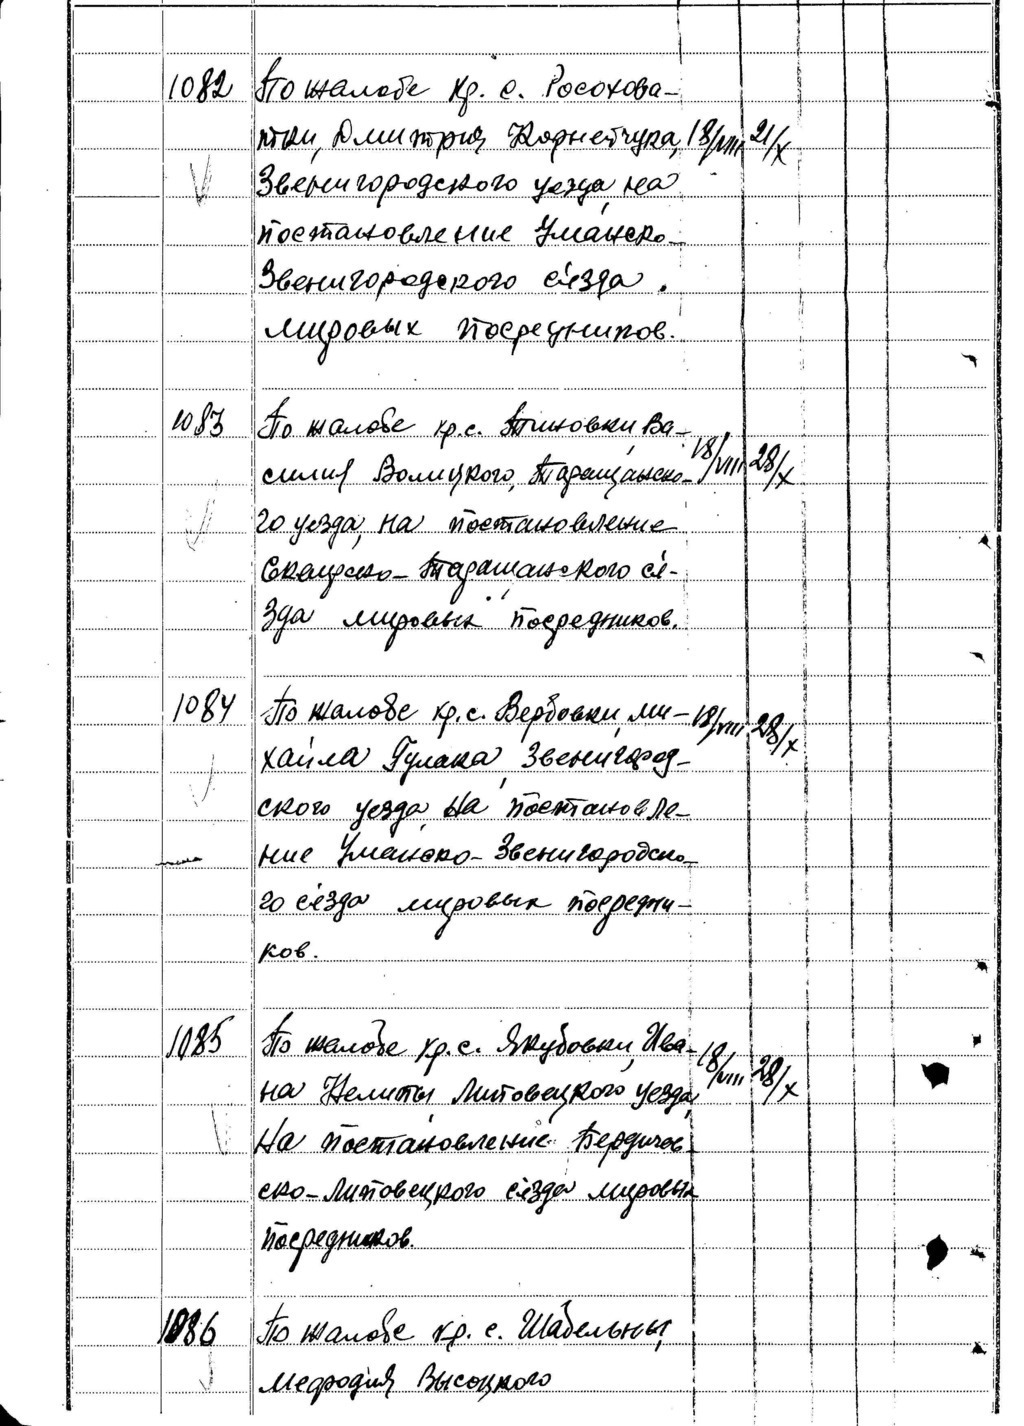 1082 По жалобе кр. с. Росохова-
тки, Дмитрия Корнейчука, 18/VIII 21/X
Звенигородского уезда, на
постановление Уманско-
Звенигородского с'езда
мировых посредников.
1083 По жалобе кр. с. Тиновки, Ва-
силия Волицкого, Таращанско- 18/VIII 28/X
го уезда, на постановление
Сквирско-Таращанского с'е-
зда мировых посредников.
1084 По жалобе кр. с. Вербовки, Ми- 18/VIII 28/X
хайла Гулака, Звенигород-
ского уезда, на постановле-
ние Уманско-Звенигородско-
го с'езда мировых посредни-
ков.
1085 По жалобе кр. с. Якубовки, Ива- 18/VIII 28/X
на Нелипы, Липовецкого уезда,
на постановление Бердичев-
ско-Липовецкого с'езда мировых
посредников.
1086 По жалобе кр. с. Шабельны,
Мефодия Высоцкого